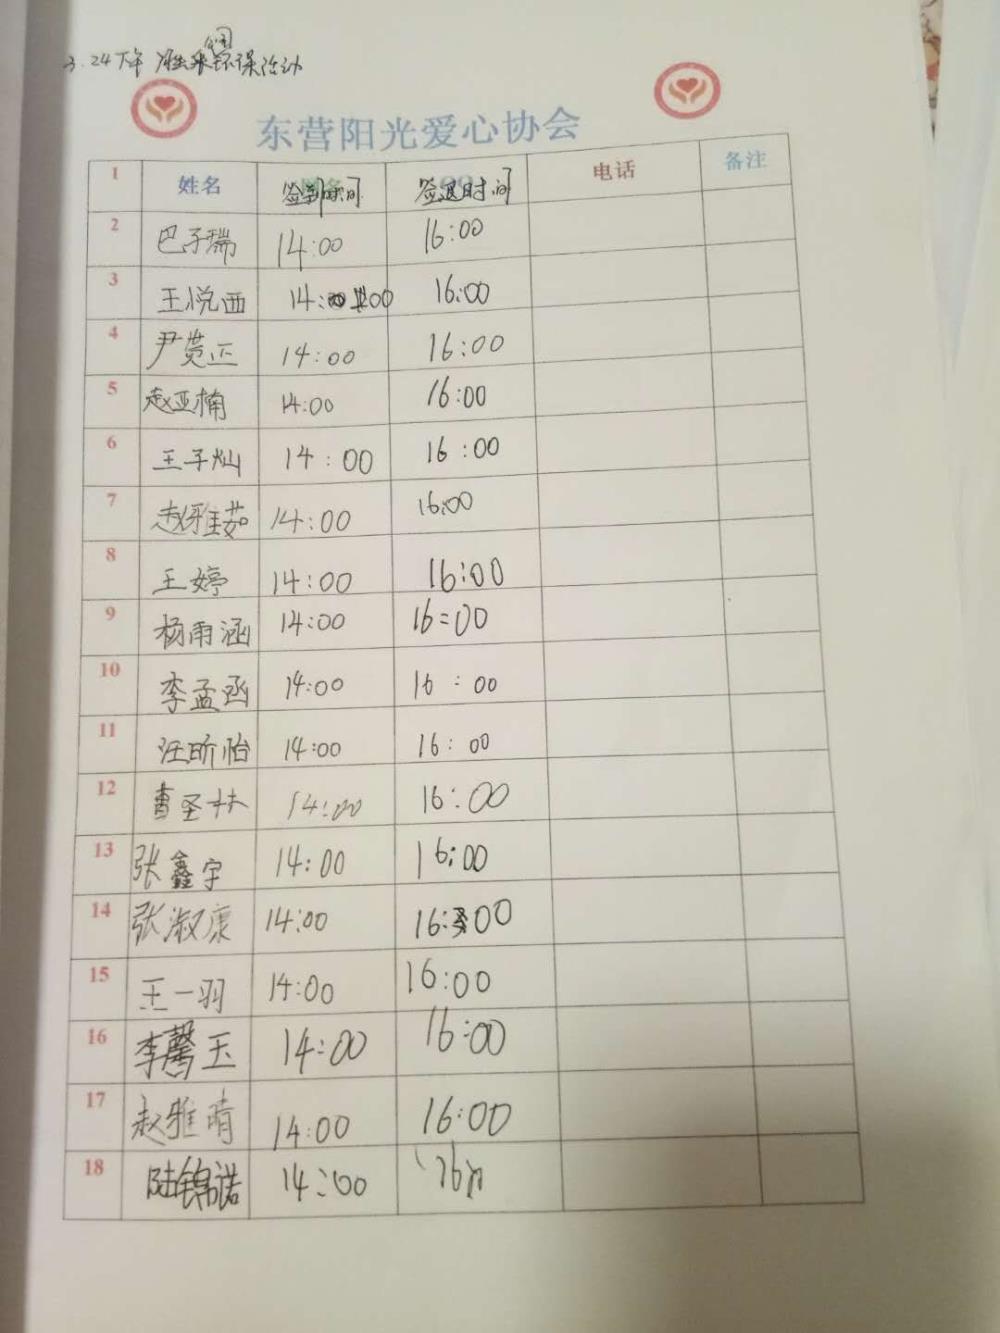 3.24下午 环保活动
东营阳光爱心协会
1 姓名 签到时间 签退时间 电话 备注
2 巴子瑞 14:00 16:00
3 王悦西 14:00 16:00
4 尹贵正 14:00 16:00
5 赵亚楠 14:00 16:00
6 王子灿 14:00 16:00
7 赵雅茹 14:00 16:00
8 王婷 14:00 16:00
9 杨雨涵 14:00 16:00
10 李孟函 14:00 16:00
11 汪昕怡 14:00 16:00
12 曹圣林 14:00 16:00
13 张鑫宇 14:00 16:00
14 张淑康 14:00 16:00
15 王一羽 14:00 16:00
16 李馨玉 14:00 16:00
17 赵雅晴 14:00 16:00
18 陆锦诺 14:00